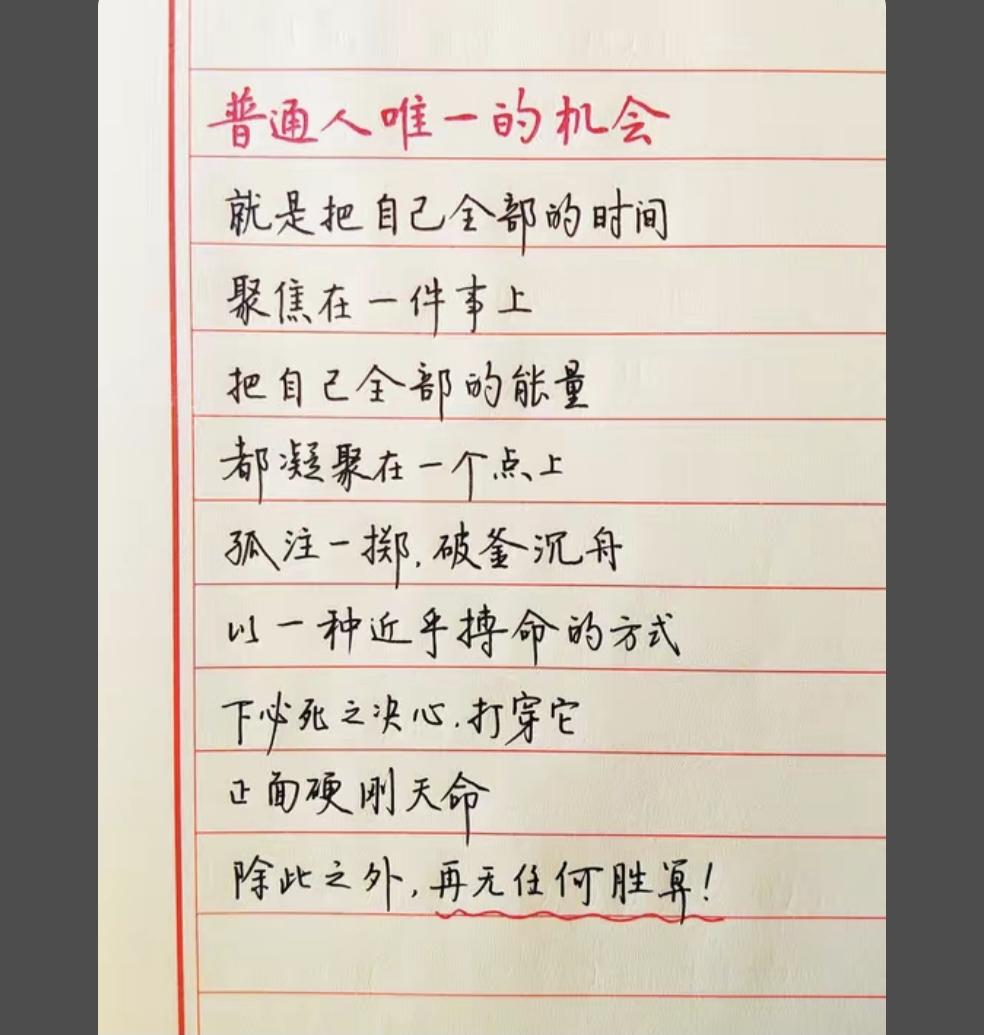 普通人唯一的机会
就是把自己全部的时间
聚焦在一件事上
把自己全部的能量
都凝聚在一个点上
孤注一掷,破釜沉舟
以一种近乎搏命的方式
下必死之决心.打穿它
正面硬刚天命
除此之外,再无任何胜算!